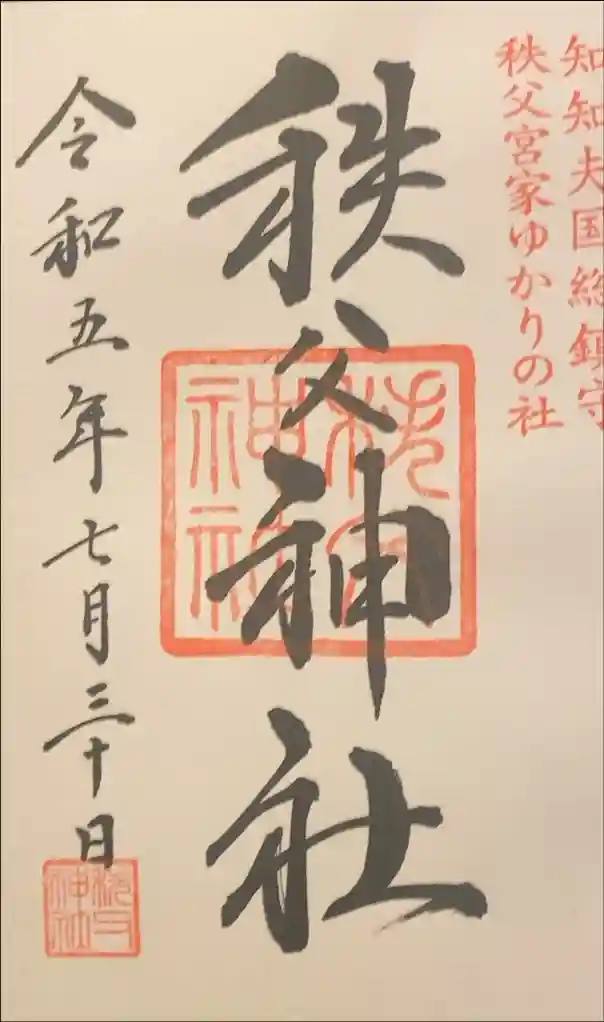 知知夫国総鎮守
秩父宮家ゆかりの社
秩父神社
令和五年七月三十日
秩父神社